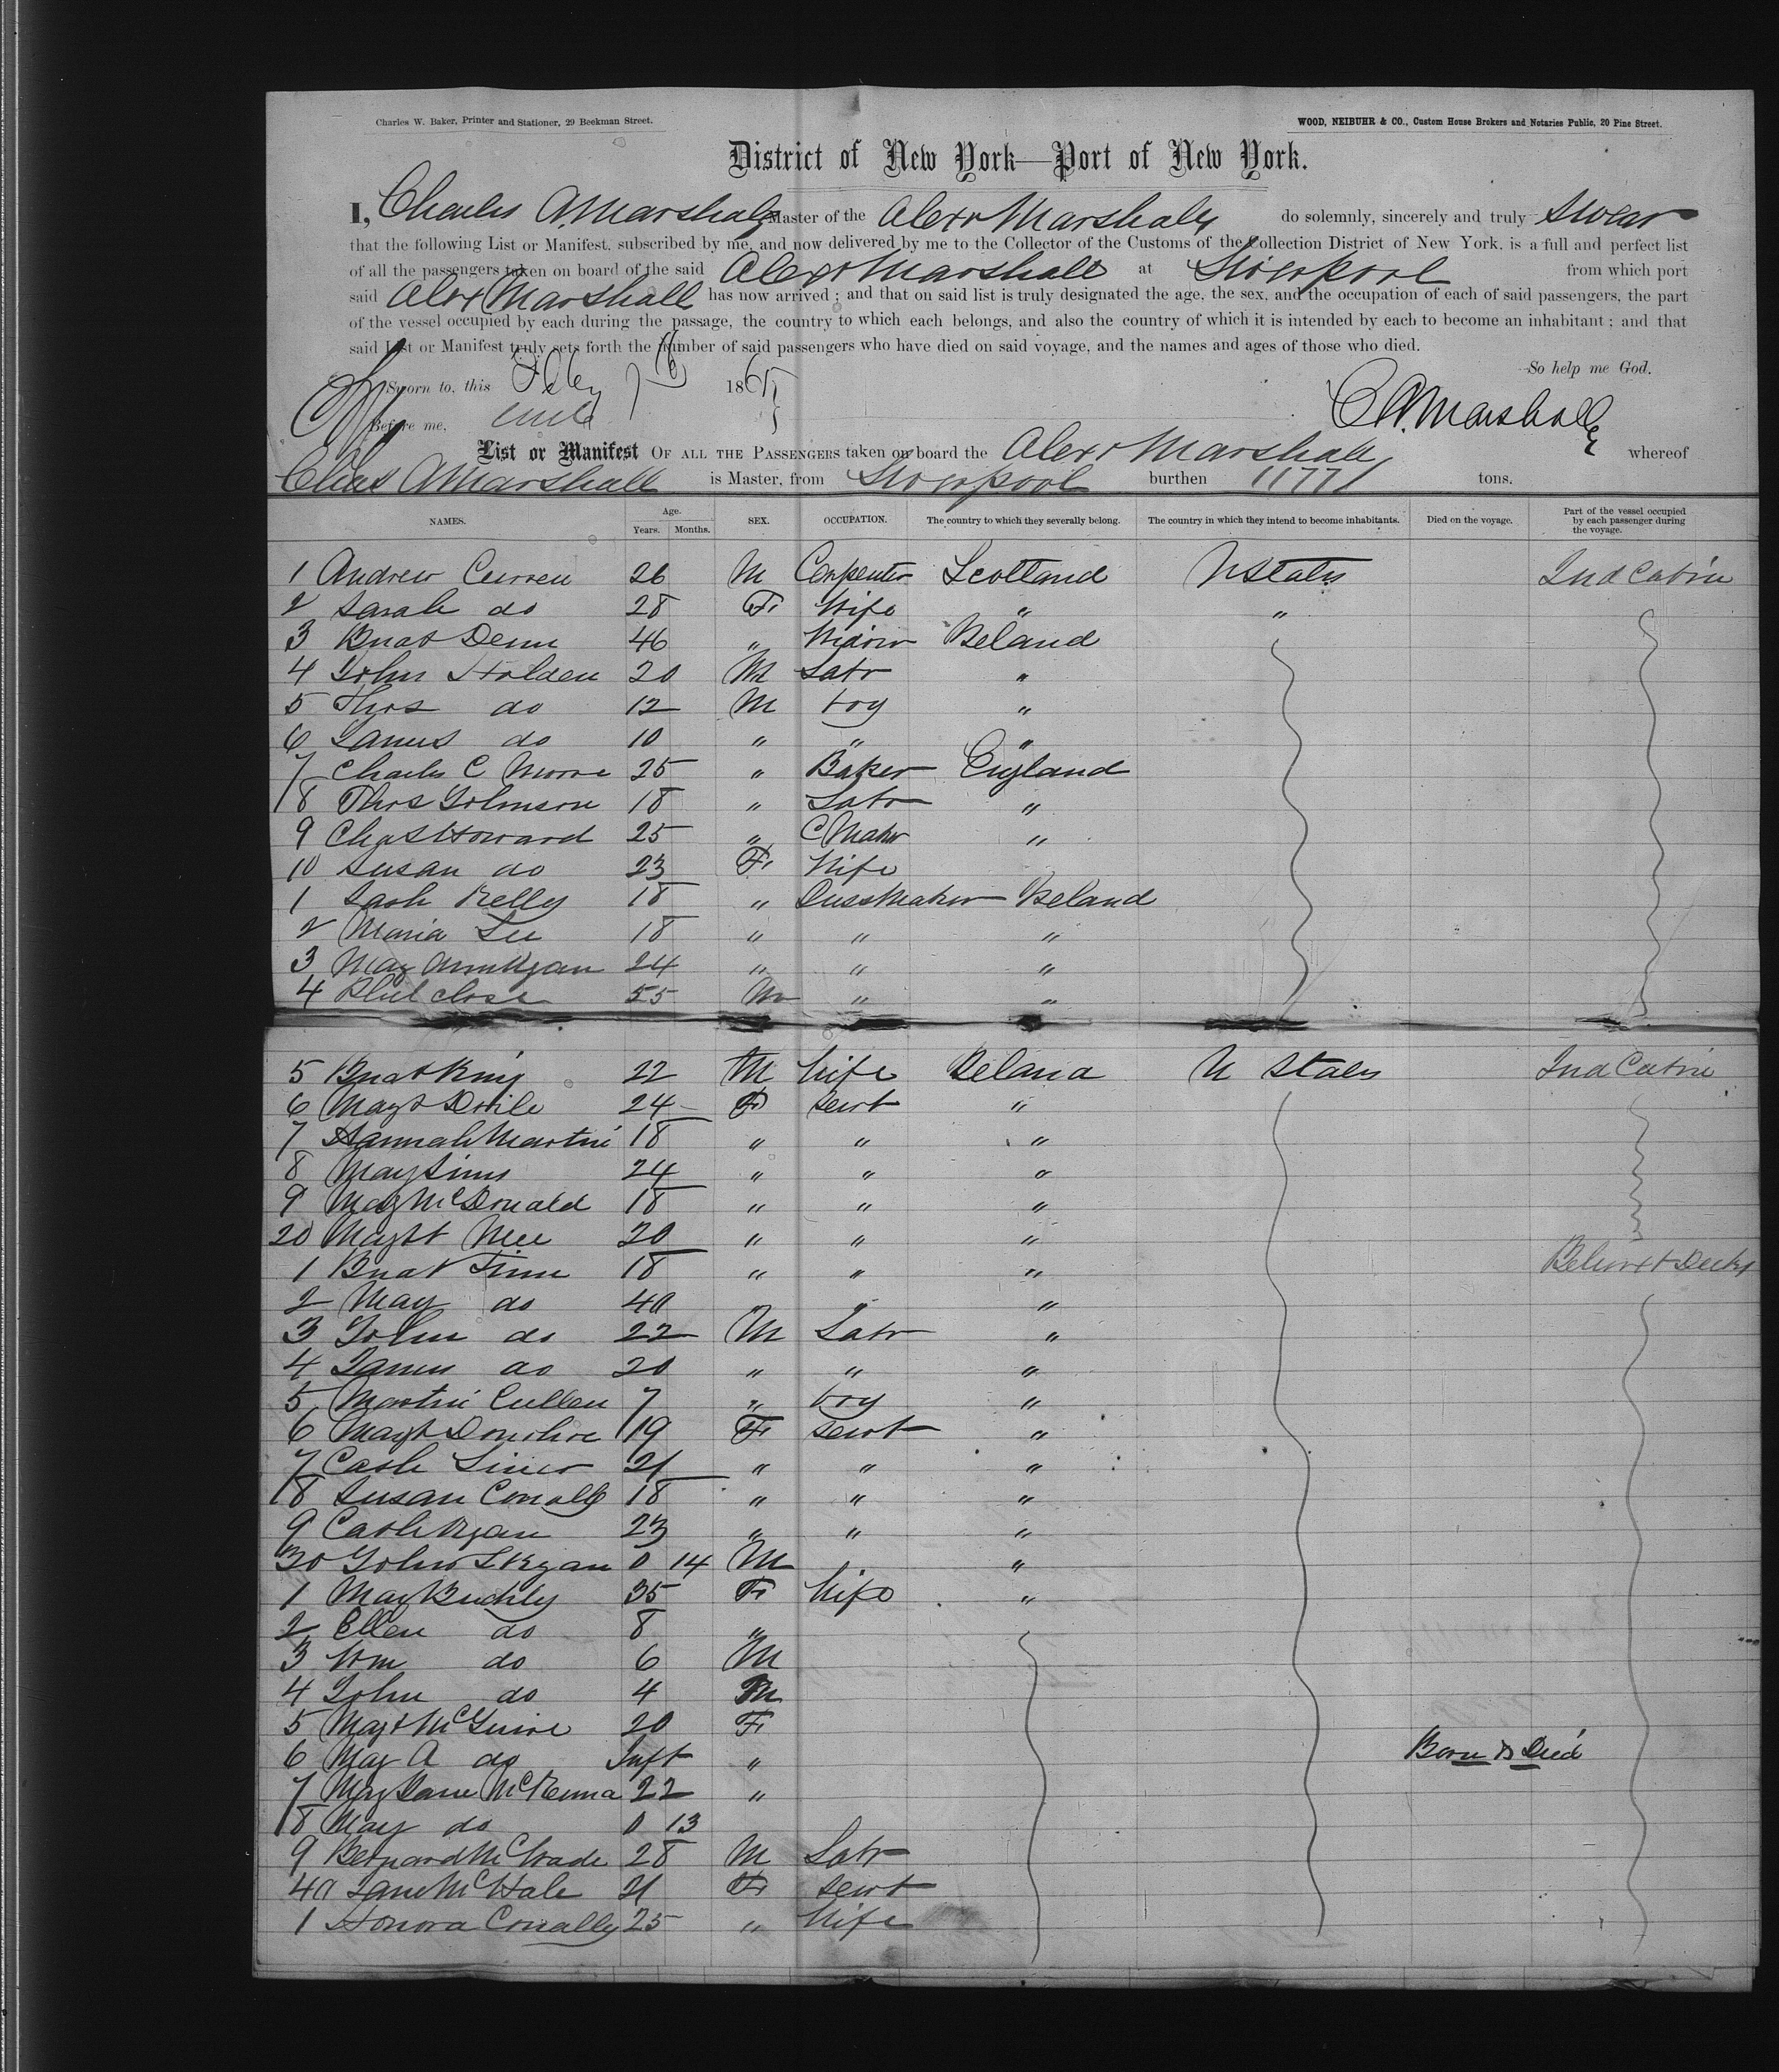 Charles W. Baker, Printer and Stationer, 29 Beekman Street.
WOOD, NEIBUHR & CO., Custom House Brokers and Notaries Public, 20 Pine Street.
District of New York—Port of New York.
I, Charles A. Marshall Master of the Alexr Marshall do solemnly, sincerely and truly swear
that the following List or Manifest, subscribed by me, and now delivered by me to the Collector of the Customs of the Collection District of New York, is a full and perfect list
of all the passengers taken on board of the said Alexr Marshall at Liverpool from which port
said Alexr Marshall has now arrived; and that on said list is truly designated the age, the sex, and the occupation of each of said passengers, the part
of the vessel occupied by each during the passage, the country to which each belongs, and also the country of which it is intended by each to become an inhabitant; and that
said List or Manifest truly sets forth the number of said passengers who have died on said voyage, and the names and ages of those who died.
So help me God.
Sworn to, this Feby 186
Before me,
C A. Marshall
List or Manifest OF ALL THE PASSENGERS taken on board the Alexr Marshall whereof
Chas A Marshall is Master, from Liverpool burthen 1177 tons.
NAMES. Age. Years. Months. SEX. OCCUPATION. The country to which they severally belong. The country in which they intend to become inhabitants. Died on the voyage. Part of the vessel occupied by each passenger during the voyage.
1 Andrew Curren 26 M Carpenter Scotland U States 2nd Cabin
2 Sarah do 28 F Wife " "
3 Bridt 46 " Widow Ireland
4 John Holden 20 M Labr "
5 Thos do 12 M boy "
6 James do 10 " " "
7 Charles C Moore 25 " Baker England
8 Thos Johnson 18 " Labr "
9 Chas Howard 25 " C Maker "
10 Susan do 23 F Wife
1 Cath Kelly 18 " Dressmaker Ireland
2 Maria Lee 18 " " "
3 Mary Ann Ryan 24 " " "
4 close 55 M " "
5 Bridt King 22 M Wife Ireland U States 2nd Cabin
6 Magt 24 F Servt "
7 Hannah Martin 18 " " "
8 Mary Sims 24 " " "
9 Mary McDonald 18 " " "
20 Magt Mee 20 " " "
1 Bridt Finn 18 " " " Betwixt Decks
2 Mary do 40 " " "
3 John do 22 M Labr "
4 James do 20 " " "
5 Martin Cullen 7 " boy "
6 Magt Donohoe 19 F Servt "
7 Cath 21 " " "
8 Susan Conally 18 " " "
9 Cath Ryan 23 " " "
30 John Ryan 0 14 M "
1 Mary Buckley 35 F Wife "
2 Ellen do 8 "
3 Wm do 6 M
4 John do 4 M
5 Magt McGuire 20 F
6 Mary A do Inft " Born & Died
7 Mary Jane McKenna 22 "
8 Mary do 0 13
9 Bernard McWade 28 M Labr
40 Jane McHale 21 F Servt
1 Honora Conally 25 " Wife